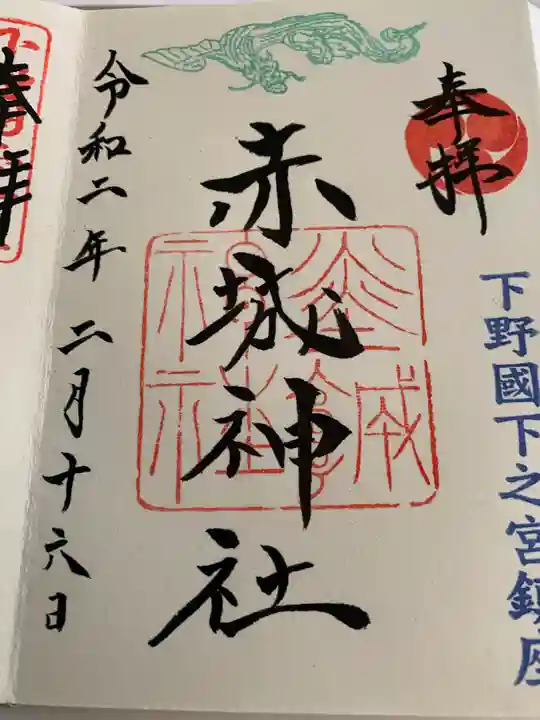 奉拝
下野國下之宮鎮座
赤城神社
令和二年 二月十六日
奉拝